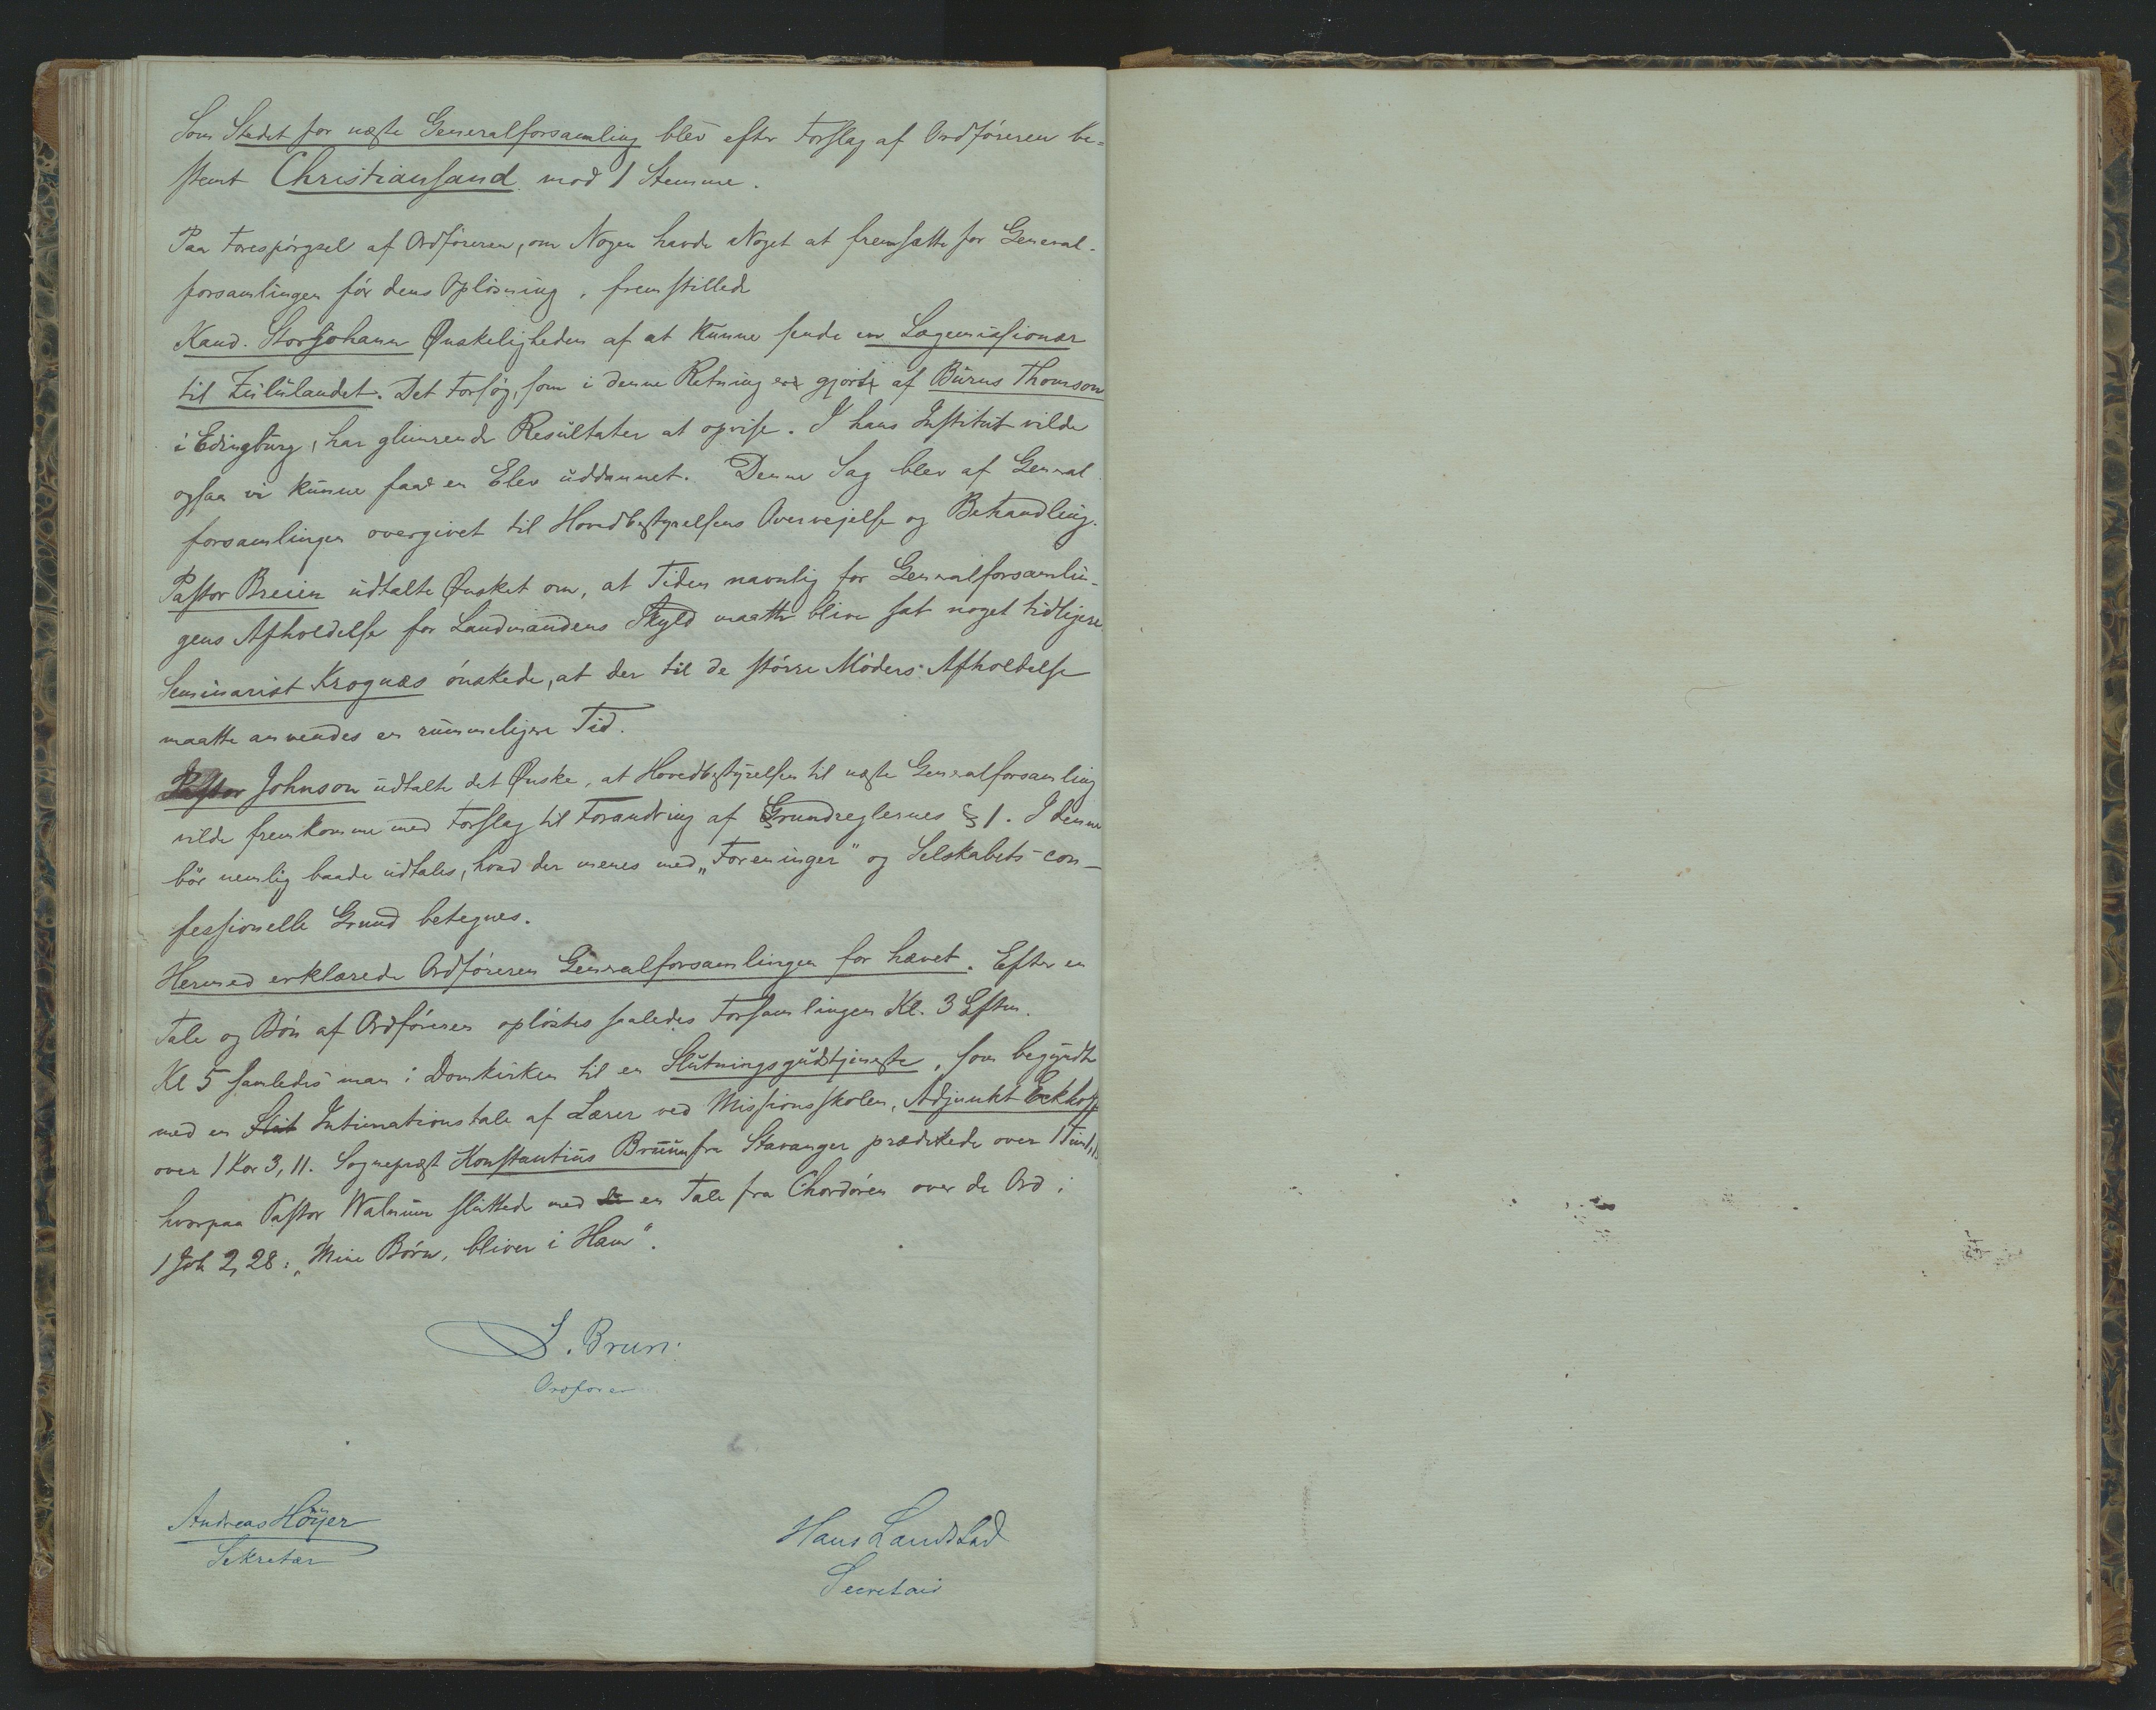 Som Stedet for næste Generalforsamling blev efter Forslag af Ordføreren be=
stemt Christiansand mod 1 Stemme.
Paa Forespörgsel af Ordföreren, om Nogen havde Noget at fremsætte for General-
forsamlingen för dens Oplösning, fremstillede
Kand. Storjohann Ønskeligheden af at kunne sende en Lægemissionær
til Zululandet. Det Forsög, som i denne Retning er gjort af Burns Thomson
i Edingburg, har glimrende Resultater at opvise. I hans Institut vilde
ogsaa vi kunne faae en Elev uddannet. Denne Sag blev af General
forsamlingen overgivet til Hovedbestyrelsens Overvejelse og Behandling.
Pastor Breien udtalte Ønsket om, at Tiden navnlig for Generalforsamlin-
gens Afholdelse for Landmandens Skyld maatte blive sat noget tidligere.
Seminarist Krognæs önskede, at der til de större Möders Afholdelse
maatte anvendes en rummeligere Tid.
Pastor Johnson udtalte det Ønske, at Hovedbestyrelsen til næste Generalforsamling
vilde fremkomme med Forslag til Forandring af Grundreglernes § 1. I denne
bör nemlig baade udtales, hvad der menes med „Foreninger" og Selskabets con-
fessionelle Grund betegnes.
Hermed erklærede Ordföreren Generalforsamlingen for hævet. Efter en
Tale og Bön af Ordföreren oplöstes saaledes Forsamlingen Kl. 3 Eftm.
Kl 5 samledes man i Domkirken til en Slutningsgudstjeneste, som begyndte
med en Intimationstale af Lærer ved Missionsskolen, Adjunkt Eckhoff
over 1 Kor 3, 11. Sognepræst Konstantius Bruun fra Stavanger prædikede over 1 Tim 1,
hvorpaa Pastor Walnum sluttede med en Tale fra Chordören over de Ord i
1 Joh 2, 28: „Mine Börn, bliver i Ham".
S. Brun.
Ordförer
Andreas Höyer
Sekretær
Hans Landstad
Secretair